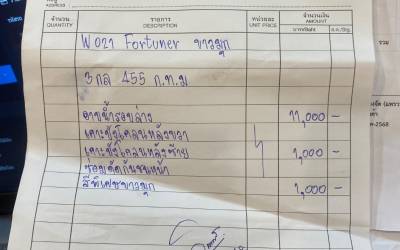 จำนวน รายการ หน่วยละ จำนวนเงิน
QUANTITY DESCRIPTION UNIT PRICE AMOUNT
บาท/Baht ส.ต./Stg.
Fortuner ขาวมุก
3 กล 455 ก.ท.ม
11,000 -
เคาะซุ้มโคลนหลังขวา
เคาะซุ้มโคลนหลังซ้าย 1,000 -
ซ่อมกันชนหน้า
สีพิเศษขาวมุก 1,000 -
รวม
-2568